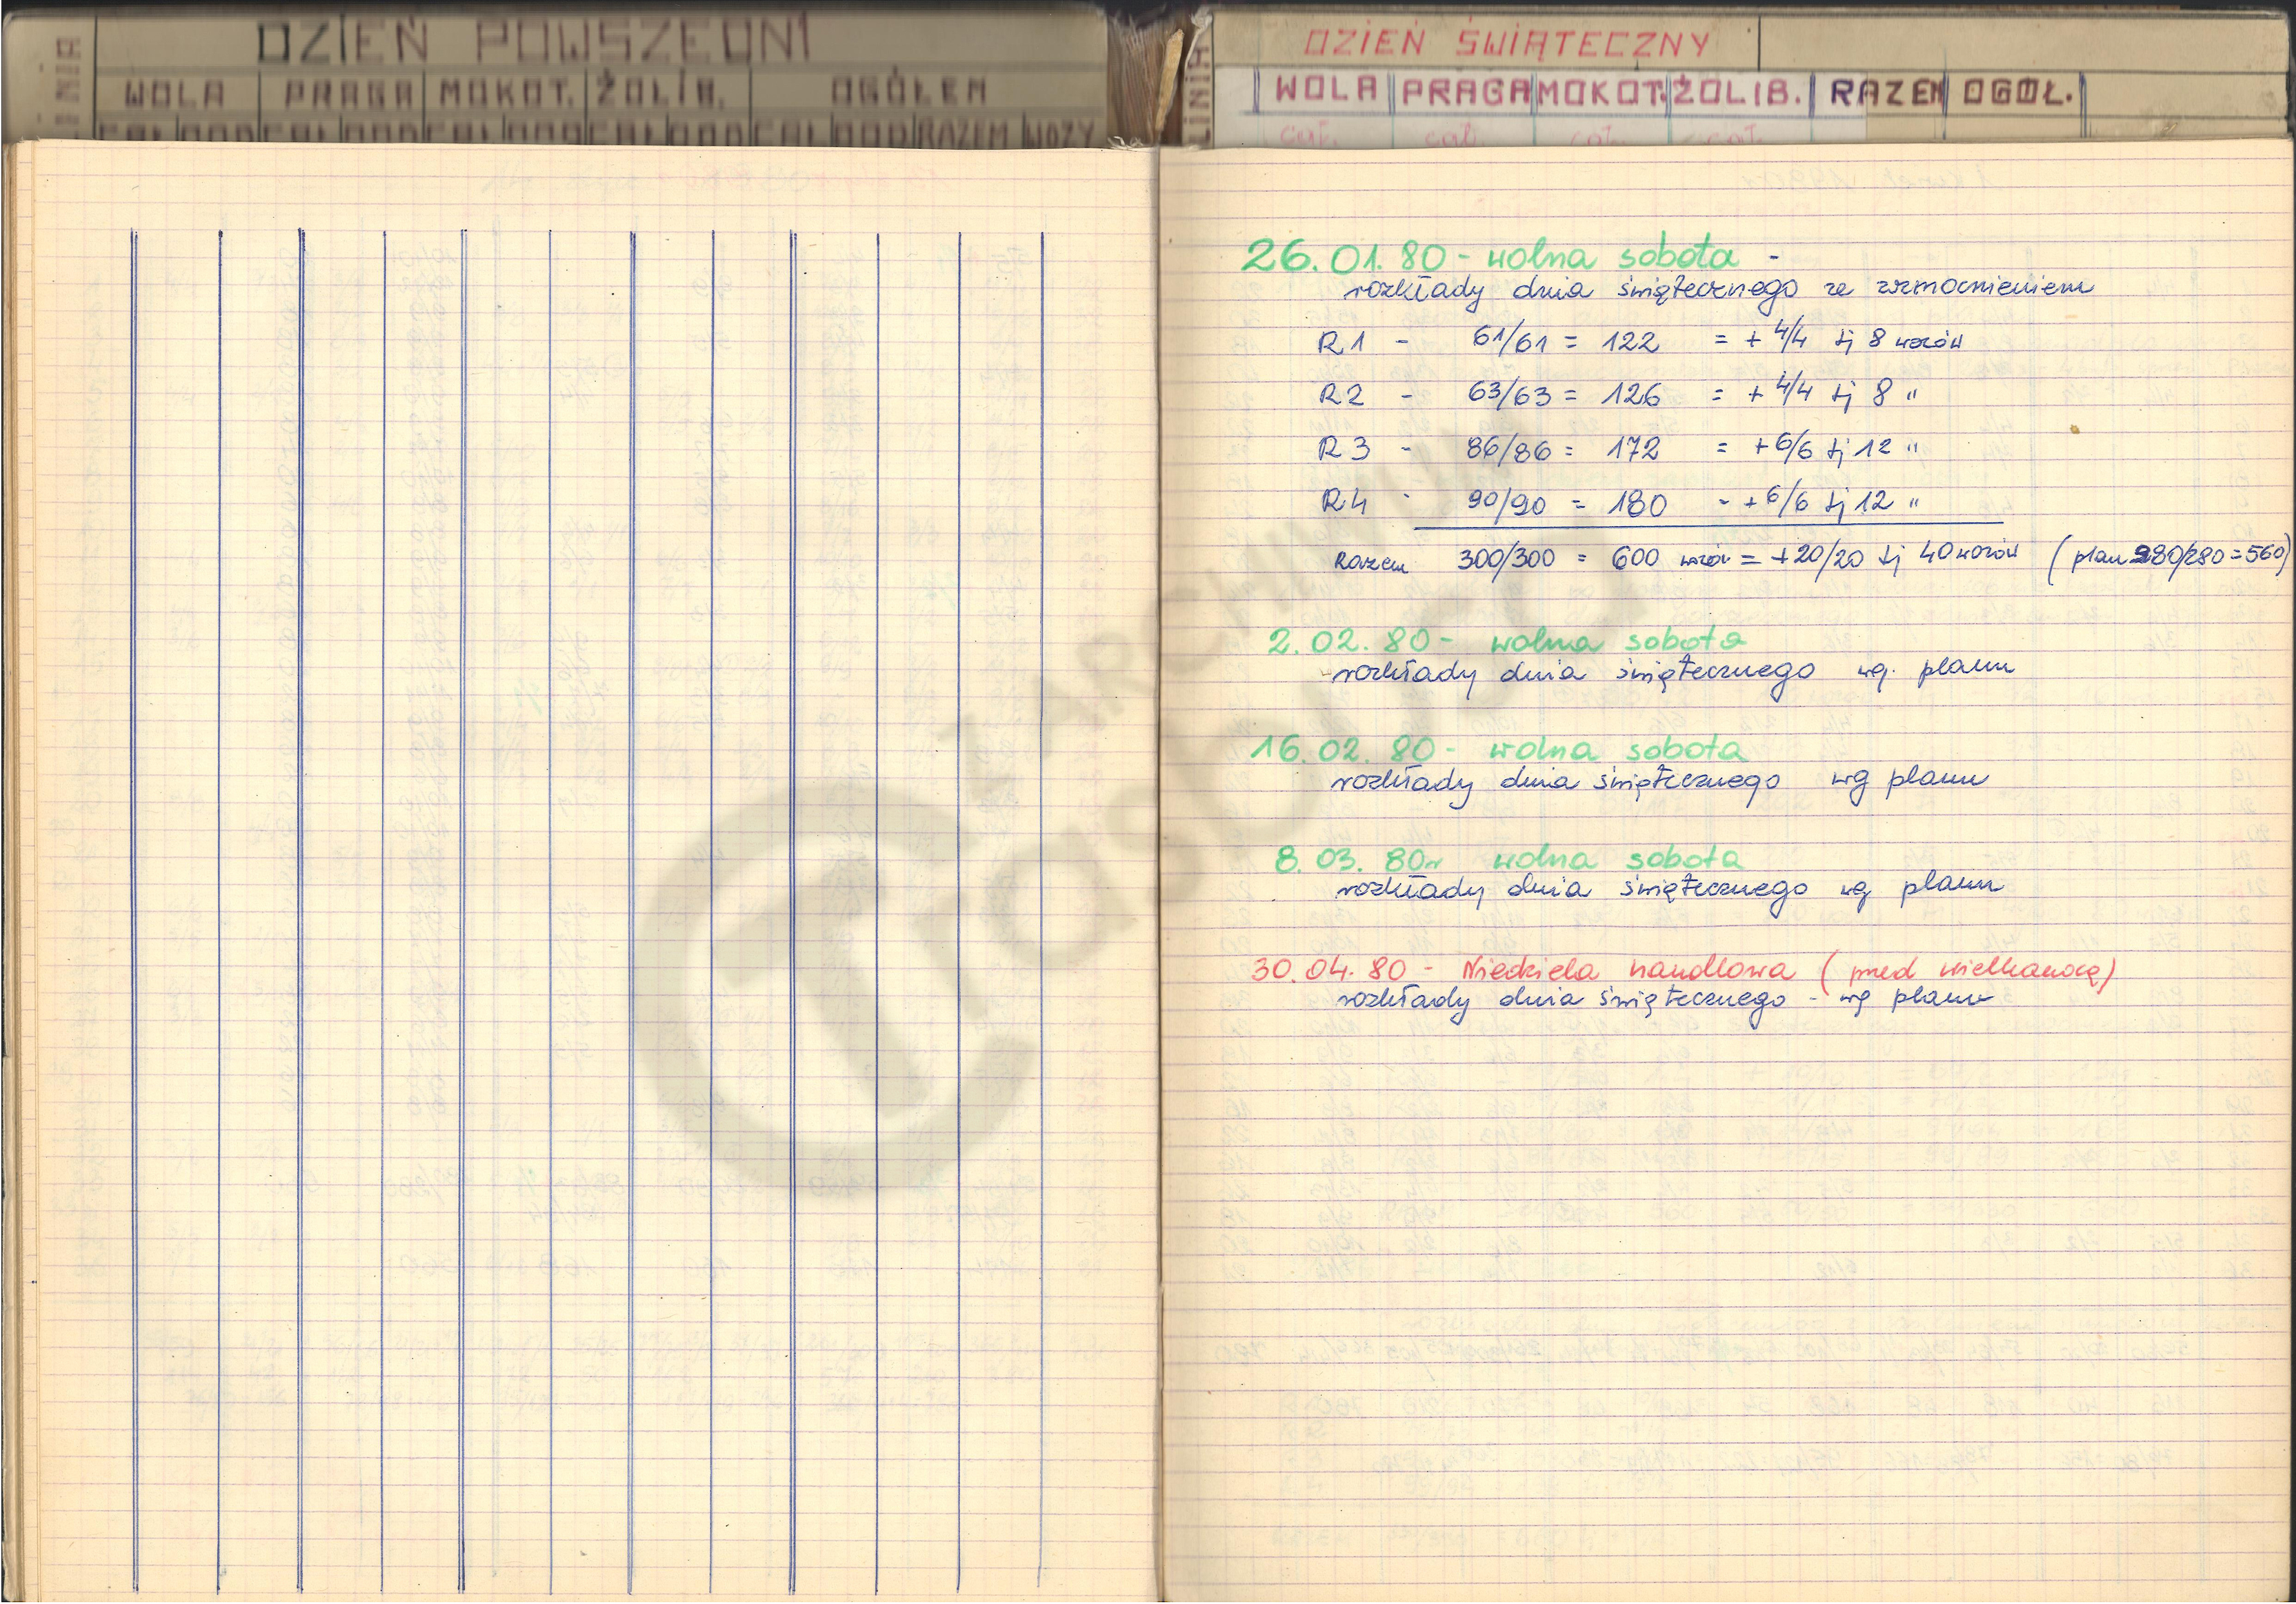 LINIA
DZIEŃ POWSZEDNI
WOLA PRAGA MOKOT. ŻOLIB. OGÓŁEM
CAŁ DOD CAŁ DOD CAŁ DOD CAŁ DOD CAŁ DOD RAZEM WOZY
LINIA
DZIEŃ ŚWIĄTECZNY
WOLA PRAGA MOKOT. ŻOLIB. RAZEM OGÓŁ.
cał. cał. cał. cał.
26.01.80 - wolna sobota -
rozkłady dnia świątecznego ze wzmocnieniem
R1 - 61/61 = 122 = + 4/4 tj 8 wozów
R2 - 63/63 = 126 = + 4/4 tj 8 "
R3 - 86/86 = 172 = + 6/6 tj 12 "
R4 - 90/90 = 180 = + 6/6 tj 12 "
Razem 300/300 = 600 wozów = +20/20 tj 40 wozów (plan 280/280 = 560)
2.02.80 - wolna sobota
rozkłady dnia świątecznego wg. planu
16.02.80 - wolna sobota
rozkłady dnia świątecznego wg planu
8.03.80r wolna sobota
rozkłady dnia świątecznego wg planu
30.04.80 - Niedziela handlowa (przed wielkanocą)
rozkłady dnia świątecznego - wg planu
Z ARCHIWUM
Trasbus.com